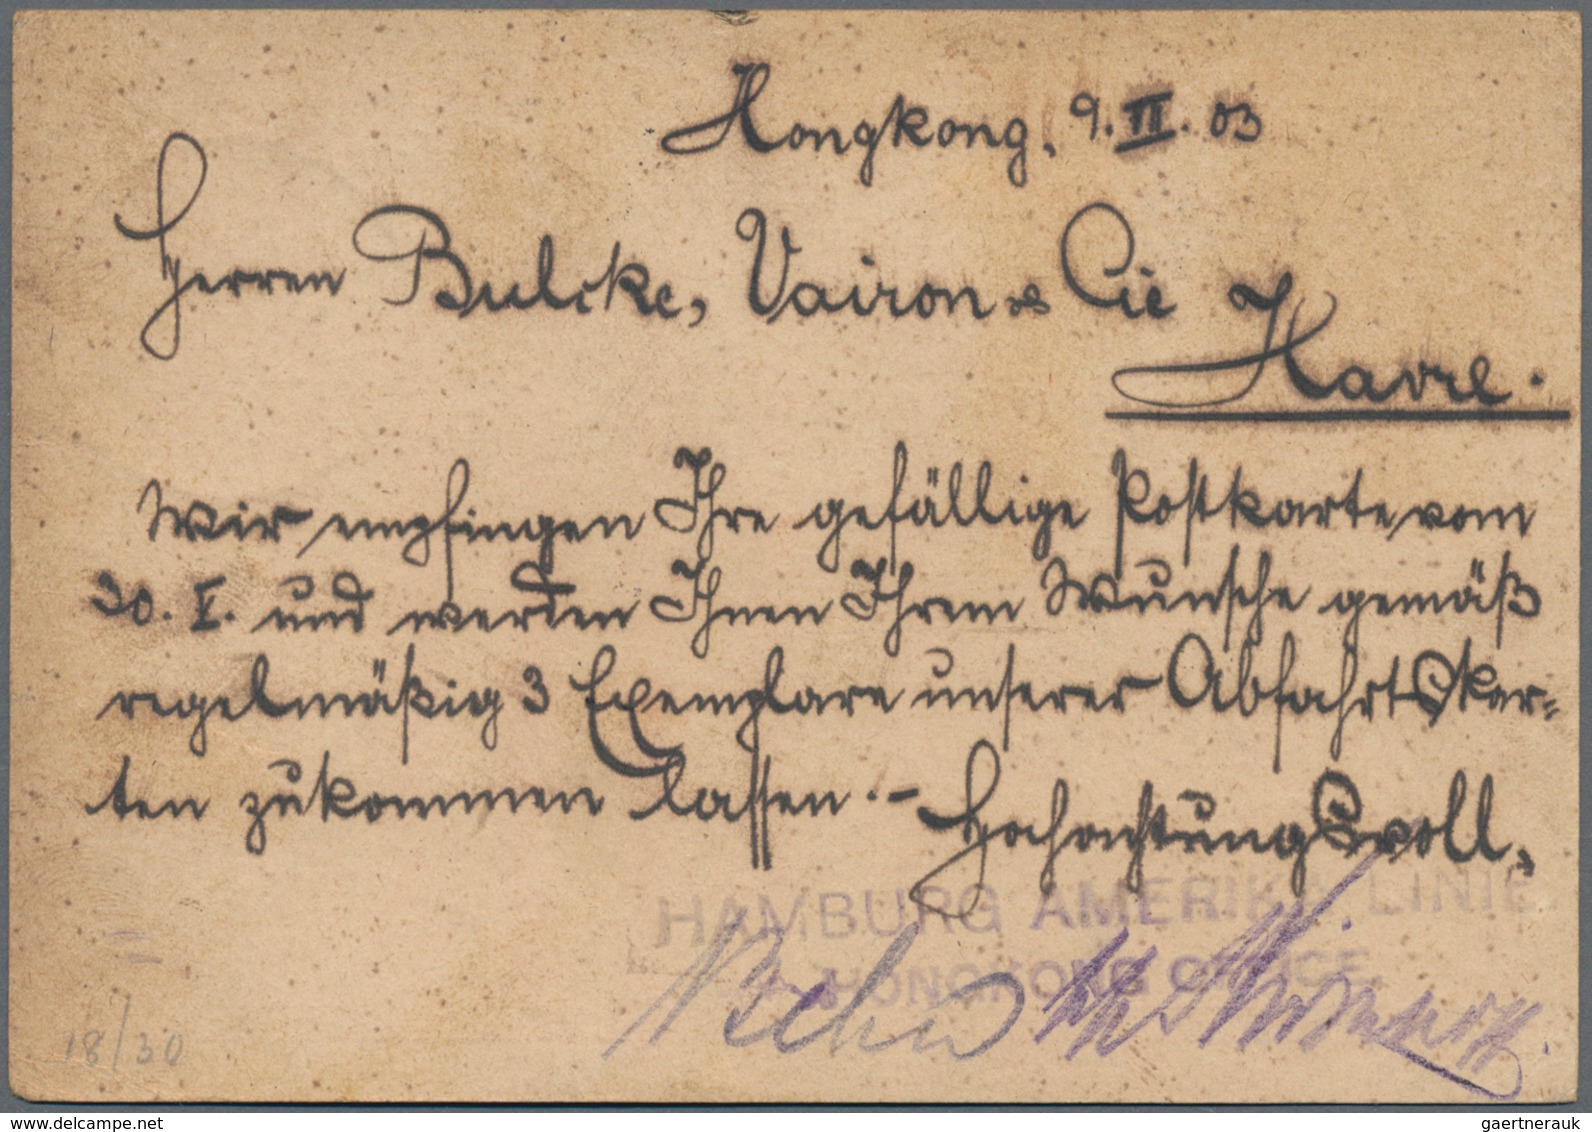 Hongkong, 9. VI. 03
Herren Bulcke, Vairon & Cie
Havre.
Wir empfingen Ihre gefällige Postkarte vom
30. V. und werden Ihnen Ihrem Wunsche gemäß
regelmäßig 3 Exemplare unserer Abfahrtskar=
ten zukommen lassen.–
Hochachtungsvoll,
HAMBURG AMERIKA LINIE
HONGKONG OFFICE.
18/30
gaertnerauk